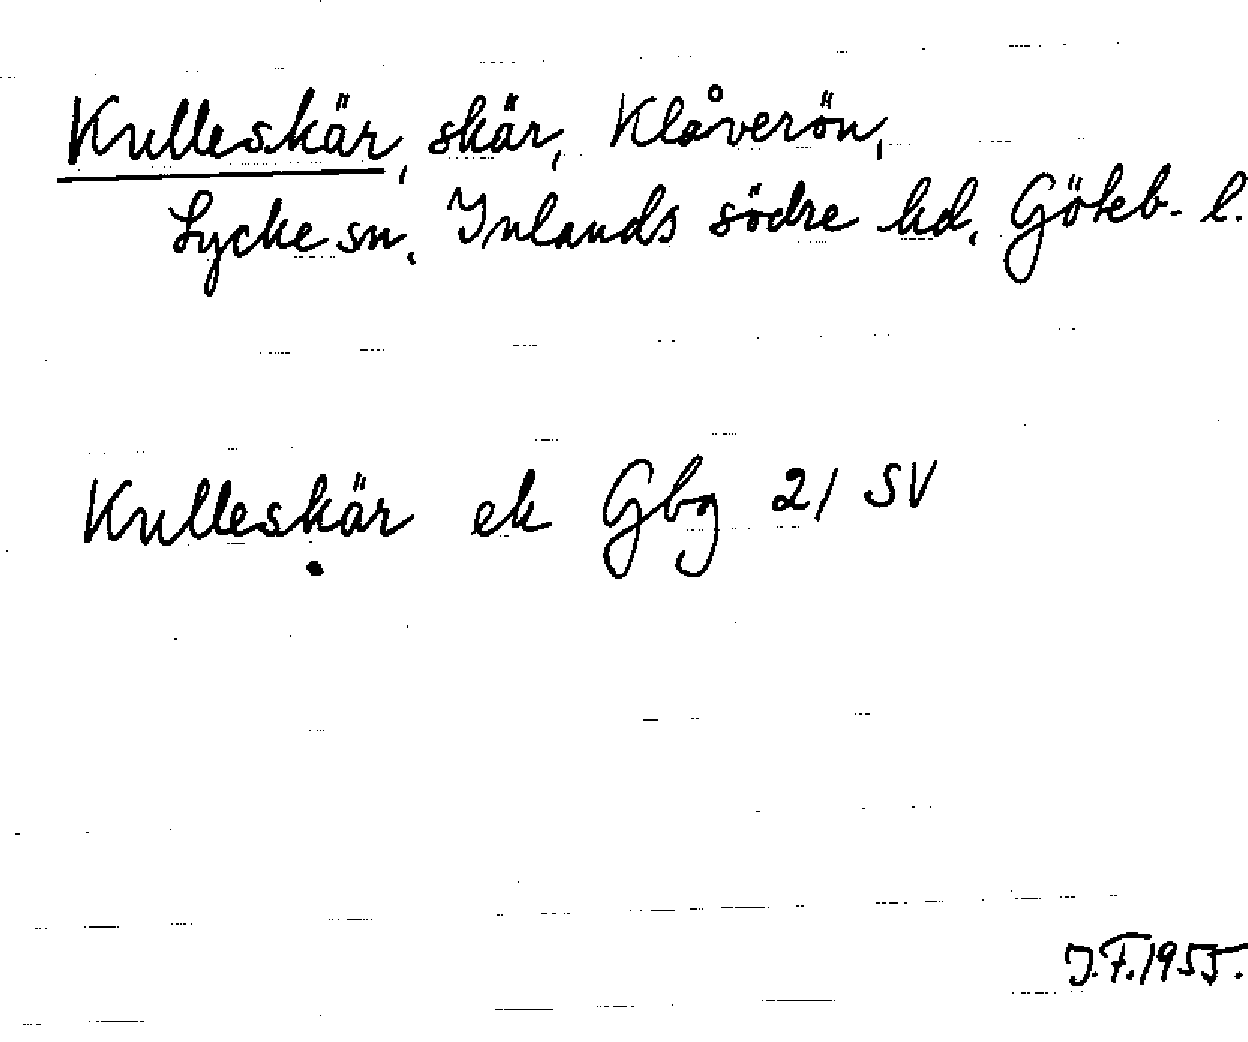 Kulleskär, skär, Klåverön,
Lycke sn, Inlands södre hd, Göteb. l.
Kulleskär ek Gbg 21 SV
J.F. 1955.